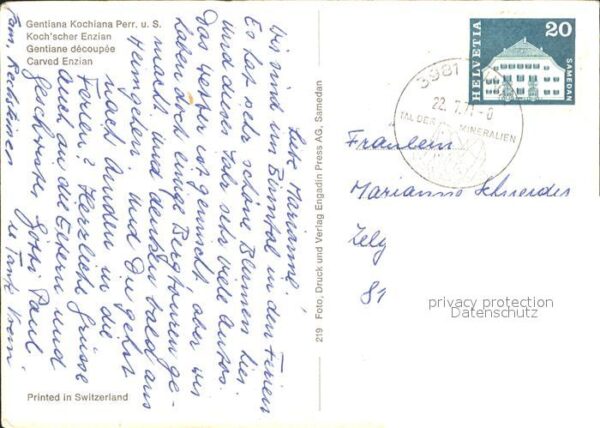 Gentiana Kochiana Perr. u. S.
Koch'scher Enzian
Gentiane découpée
Carved Enzian
Liebe Marianne!
Wir sind im Binntal in den Ferien
Es hat sehr schöne Blumen hier
und dieses Jahr sehr viele Autos.
Das Wetter ist gemischt aber wir
haben doch einige Bergtouren ge-
macht und denken bald ans
Heimgehen. und Du gehst
nach in die
Ferien? Herzliche Grüsse
auch an die Eltern und
Geschwister Götti Paul
u Tante Vreni
Fam. Rechsteiner
Printed in Switzerland
219 Foto, Druck und Verlag Engadin Press AG, Samedan
HELVETIA
20
SAMEDAN
3981
22. 7. 71
TAL DER MINERALIEN
Fräulein
Marianne Schneider
Zelg
81
privacy protection
Datenschutz